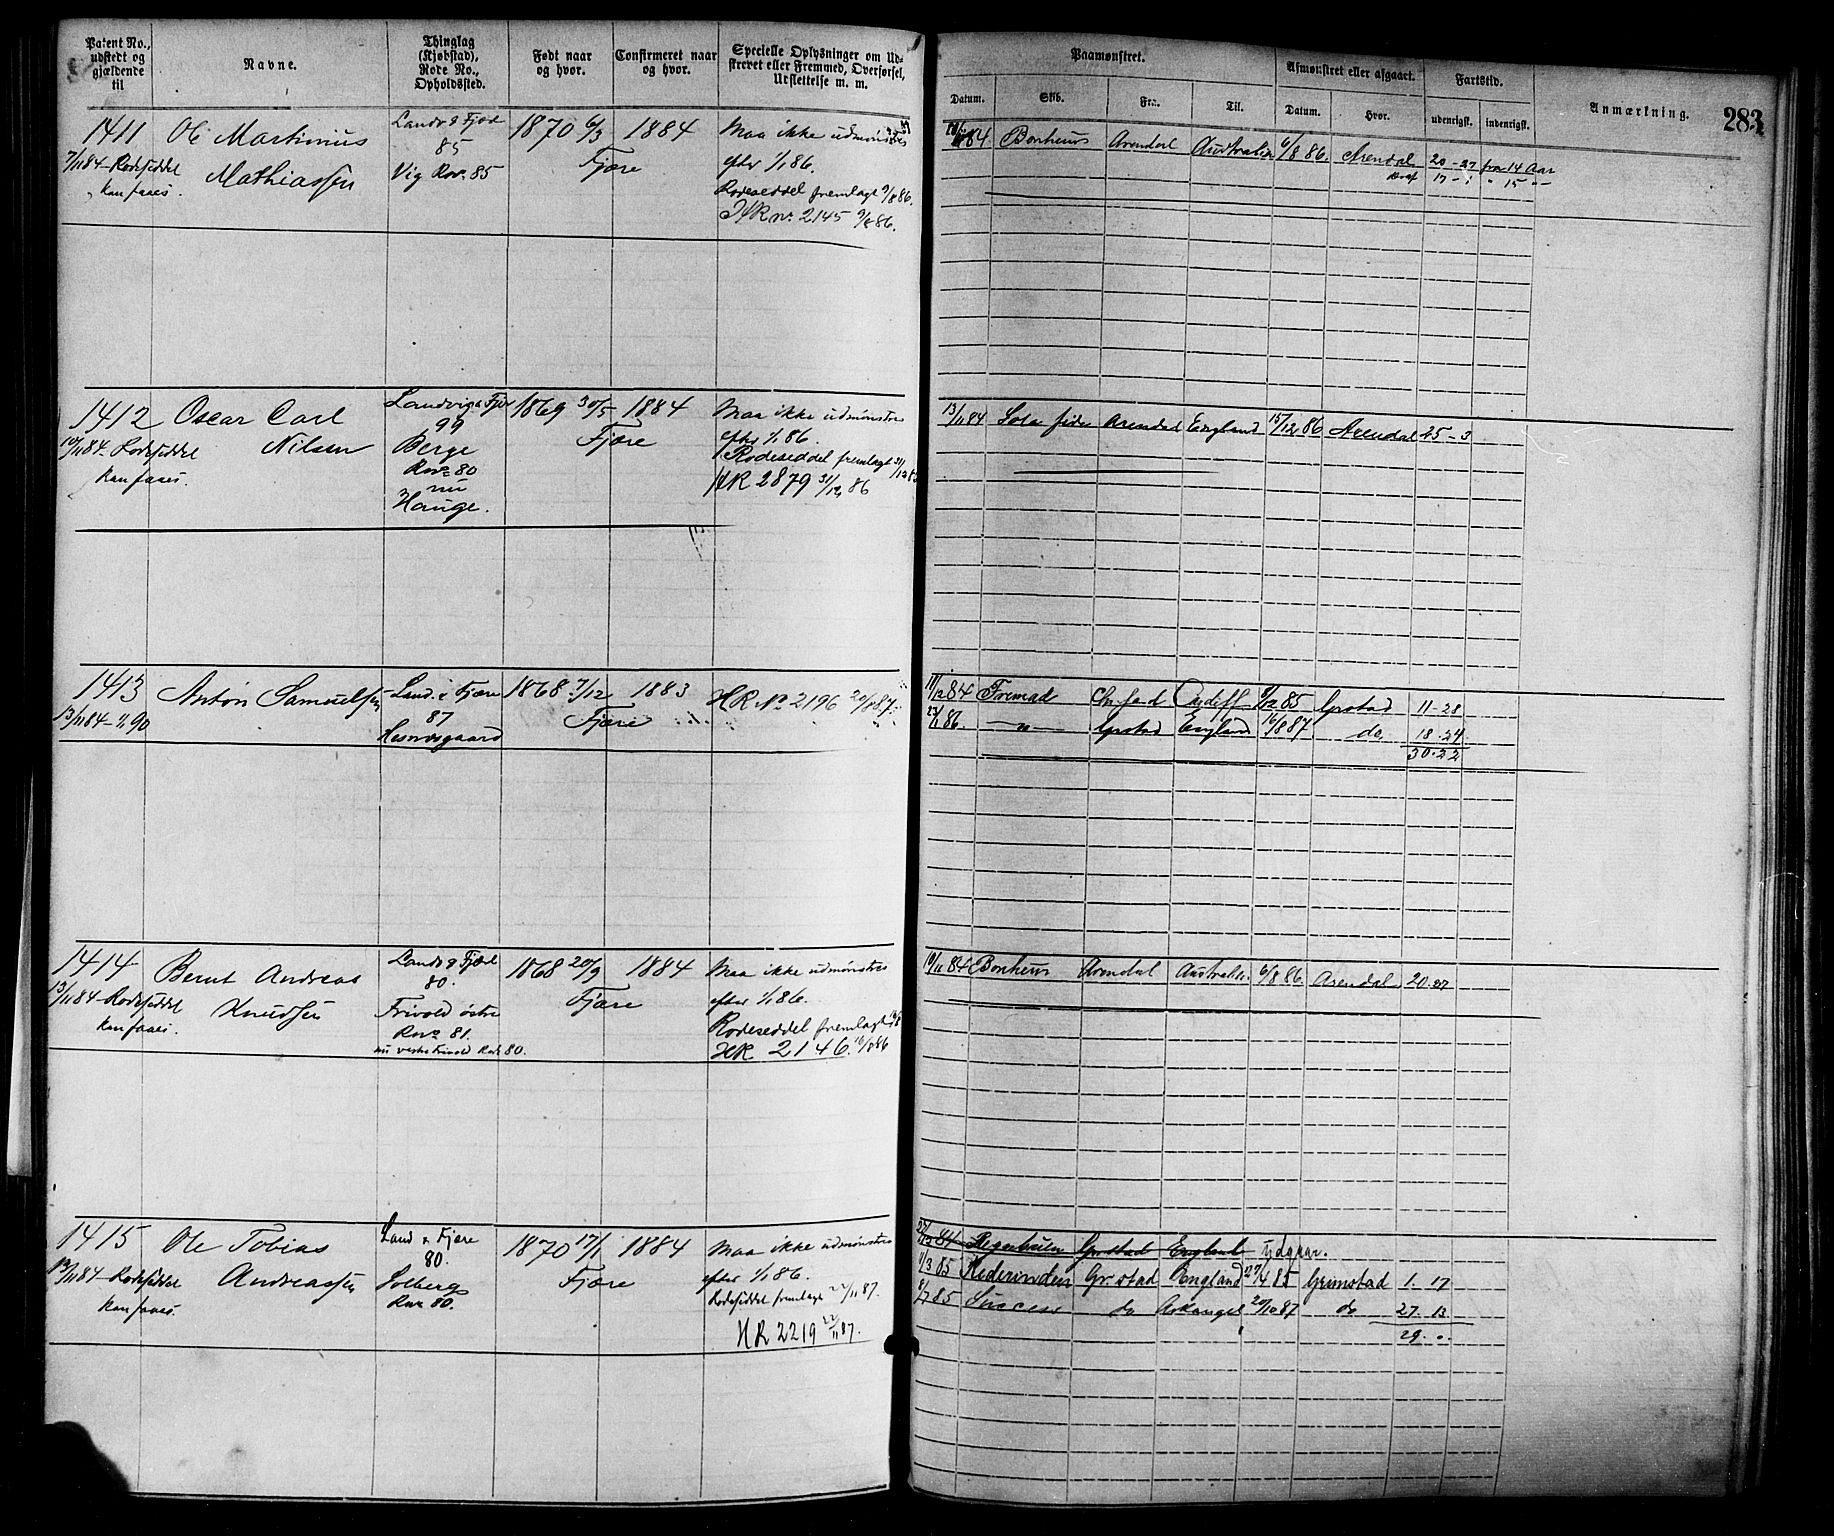 Patent No., udstedt og gjældende til
Navne.
Thinglag (Kjøbstad), Rode No., Opholdssted.
Født naar og hvor.
Confirmeret naar og hvor.
Specielle Oplysninger om Udskrevet eller Fremmed, Overførsel, Udslettelse m. m.
Paamønstret.
Afmønstret eller afgaaet.
Fartstid.
Anmærkning.
283
Datum.
Skib.
Fra.
Til.
Datum.
Hvor.
udenrigsk.
indenrigsk.
1411
7/11 84 - Rodeseddel
kan faaes.
Ole Martinius
Mathiassen
Landv & Fjære
85
Vig Rno. 85
1870 6/3
Fjære
1884
Maa ikke udmønstres
efter 1/1 86.
Rodeseddel fremlagt 9/8 86.
HR no. 2145 9/8 86.
84 Bonheur Arendal Australien 6/8 86. Arendal 20 - 27 fra 14 Aar
17 - " 15 "
1412
10/11 84 - Rodeseddel
kan faaes.
Oscar Carl
Nilsen
Landvig & Fjær
99
Berge
Rno. 80
nu
Hauge.
1869 30/5
Fjære
1884
Maa ikke udmønstres
efter 1/1 86.
Rodeseddel fremlagt 31/12 86
HR 2879 31/12 86
13/11 84 Sola fide Arendal England 15/12 86 Arendal 25 - 3
1413
13/11 84 - 90
Anton Samuelsen
Land. & Fjære
87
Hesnæsgaard
1868 7/12
Fjære
1883
HR No 2196 20/8 87
11/12 84 Fremad Chr.sand Cardiff 9/12 85 Grstad 11 - 28
23/1 86. - " - Grstad England 16/8 87 do 18 . 24
30 . 22
1414
13/11 84 - Rodeseddel
kan faaes.
Bernt Andreas
Knudsen
Landv & Fjære
80.
Frivold østre
Rno. 81.
nu vestre Frivold Rode 80.
1868 20/9
Fjære
1884
Maa ikke udmønstres
efter 1/1 86.
Rodeseddel fremlagt
HR 2146. 16/8 86
10/11 84 Bonheur Arendal Australien 6/8 86. Arendal 20 . 27
1415
13/11 84 - Rodeseddel
kan faaes.
Ole Tobias
Andreassen
Land & Fjære
80.
Solberg
Rno. 80.
1870 17/1
Fjære
1884
Maa ikke udmønstres
efter 1/1 86.
Rodeseddel fremlagt 22/11 87.
HR 2219 22/11 87.
27/12 84 Grstad England udgaar.
11/3 85 Rederinden Gr.stad England 27/4 85 Grimstad 1. 17
8/7 85 Success do Arkangel 20/10 87 do 27. 13
29. "